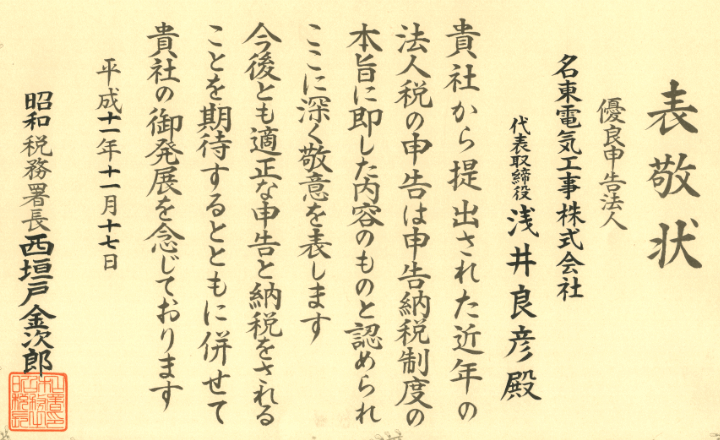 表敬状
優良申告法人
名東電気工事株式会社
代表取締役 浅井良彦殿
貴社から提出された近年の
法人税の申告は申告納税制度の
本旨に即した内容のものと認められ
ここに深く敬意を表します
今後とも適正な申告と納税をされる
ことを期待するとともに併せて
貴社の御発展を念じております
平成十一年十一月十七日
昭和税務署長 西垣戸金次郎